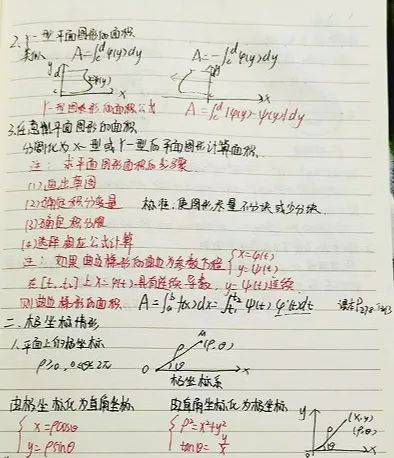 2. Y-型平面图形的面积
类似 A=∫_c^d φ(y)dy A=-∫_c^d φ(y)dy
y d c φ(y) x
x
Y-型图形的面积公式 A=∫_c^d |φ(y)-ψ(y)|dy
3.任意型平面图形的面积
分割化为X-型或Y-型后平面图形计算面积.
注: 求平面图形面积的步骤
(1)画出草图
(2)确定积分变量 标准,使图形尽量不分块或少分块.
(3)确定积分限
(4)选择相应公式计算
注: 如果曲边梯形的曲边为参数方程 {x=φ(t) y=ψ(t)
在[t₁,t₂]上x=φ(t)具有连续导数, y=ψ(t)连续
则曲边梯形的面积 A=∫_a^b f(x)dx=∫_{t₁}^{t₂} ψ(t)φ'(t)dt
二、极坐标情形
1.平面上的极坐标
ρ≥0, 0≤θ≤2π
O ρ θ (ρ,θ) x
极坐标系
由极坐标化为直角坐标 由直角坐标化为极坐标
{x=ρcosθ {ρ²=x²+y²
y=ρsinθ tanθ=y/x
y (x,y) (ρ,θ) ρ θ x